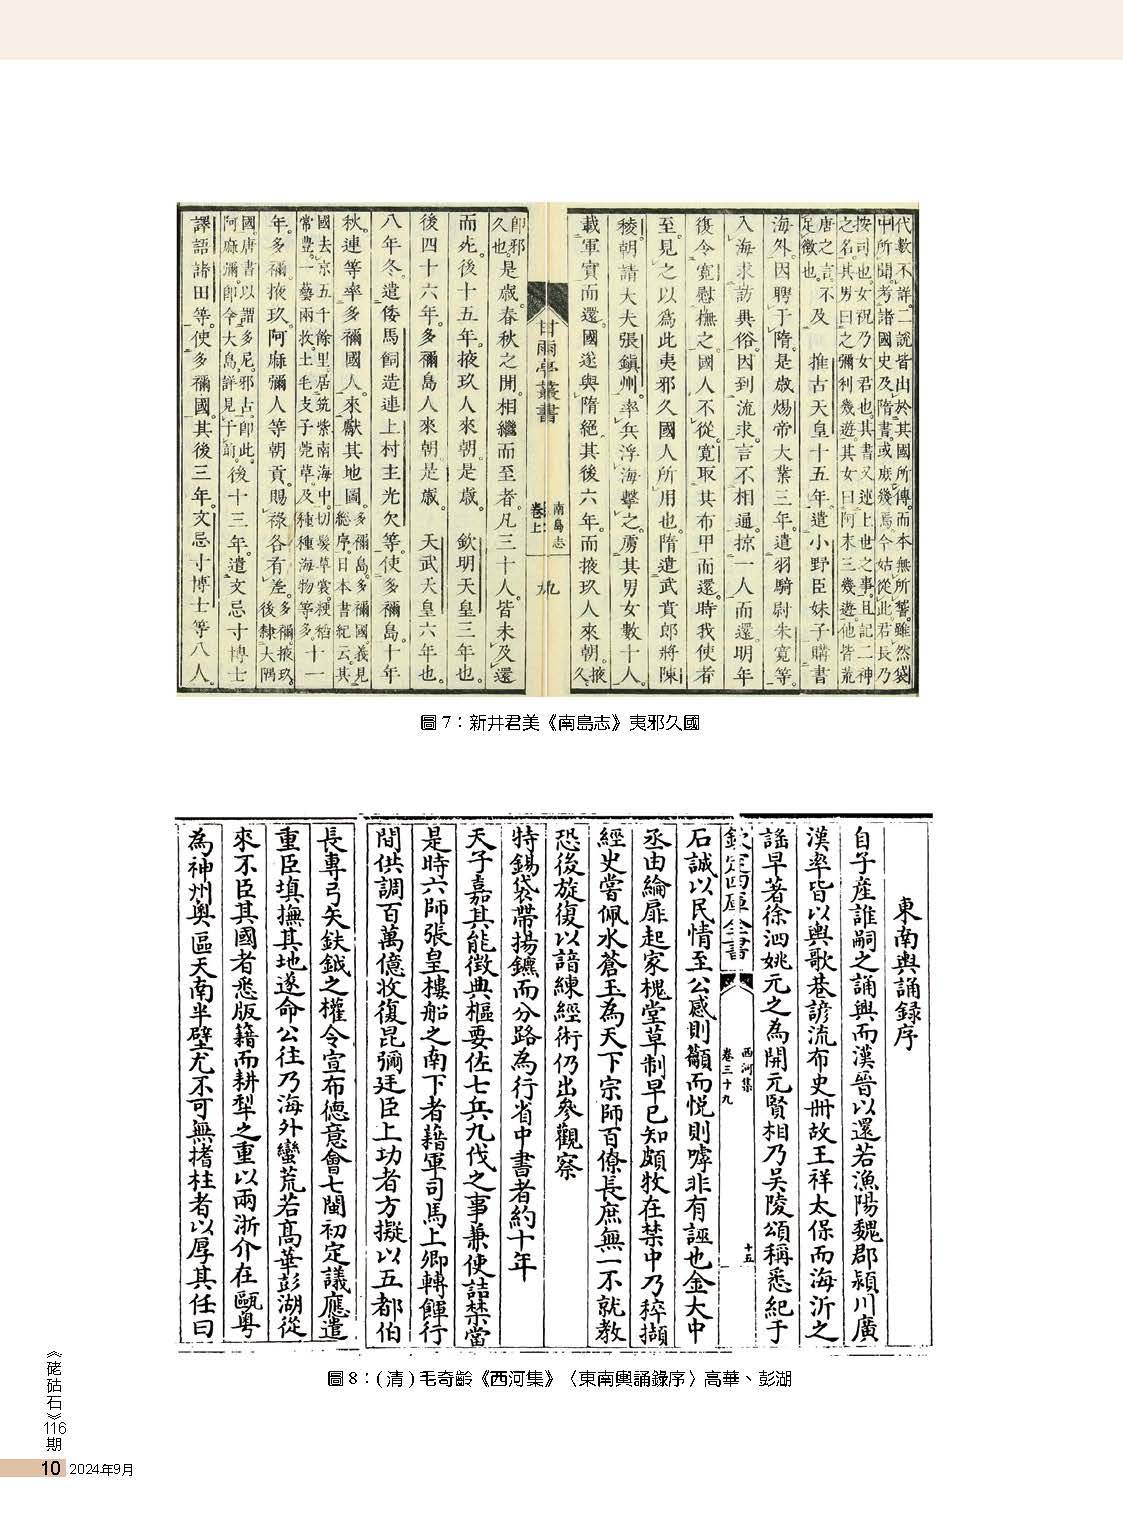 代數不詳。二說皆出於其國所傳。而本無所㨿。雖然袋
中所聞。考諸國史及隋書。或庶幾焉。今姑從此。君長乃
按司也。女祝乃女君也。其書又述上世之事。且記二神
之名。其男曰之彌利幾遊。其女曰阿末三幾遊。他皆荒
唐之言。不
足徵也。
及 推古天皇十五年。遣小野臣妹子購書
海外。因聘于隋。是歲煬帝大業三年。遣羽騎尉朱寬等。
入海求訪異俗。因到流求。言不相通。掠一人而還。明年
復令寬慰撫之。國人不從。寬取其布甲而還。時我使者
至。見之以爲此夷邪久國人所用也。隋遣武賁郎將陳
稜朝請大夫張鎭州。率兵浮海擊之。虜其男女數十人。
載軍實而還。國遂與隋絕。其後六年。而掖玖人來朝。掖
久
甘雨亭叢書
南島志
卷上
九
即邪
久也。
是歲。春秋之間。相繼而至者。凡三十人。皆未及還
而死。後十五年。掖玖人來朝。是歲。 欽明天皇三年也。
後四十六年。多禰島人來朝。是歲。 天武天皇六年也。
八年冬。遣倭馬飼造連上村主光欠等。使多禰島。十年
秋。連等率多禰國人。來獻其地圖。
多禰島。多禰國。義見
總序。日本書紀云。其
國去京五千餘里。居筑紫南海中。切髮草裳。粳稻
常豊。一蓺兩收。土毛支子莞草。及種種海物等多。十一
年。多禰掖玖阿麻彌人等朝貢。賜祿各有差。
多禰。掖玖。
後隸大隅
國。唐書以謂多尼。邪古。即此。
阿麻彌。即今大島。詳見于前。
後十三年。遣文忌寸博士
譯語諸田等。使多禰國。其後三年。文忌寸博士等八人。
圖 7：新井君美《南島志》夷邪久國
東南輿誦錄序
自子產誰嗣之誦興而漢晉以還若漁陽魏郡潁川廣
漢率皆以輿歌巷諺流布史冊故王祥太保而海沂之
謠早著徐泗姚元之為開元賢相乃吳陵頌稱悉紀于
欽定四庫全書
西河集
卷三十九
十五
石誠以民情至公感則籲而悅則嘑非有誣也金大中
丞由綸扉起家槐堂草制早已知頗牧在禁中乃稡擷
經史嘗佩水蒼玉為天下宗師百僚長庶無一不就教
恐後旋復以諳練經術仍出參觀察
特錫袋帶揚鑣而分路為行省中書者約十年
天子嘉其能徵典樞要佐七兵九伐之事兼使詰禁當
是時六師張皇樓船之南下者藉軍司馬上卿轉餫行
間供調百萬億收復昆彌廷臣上功者方擬以五都伯
長專弓矢鈇鉞之權令宣布德意會七閩初定議應遣
重臣填撫其地遂命公往乃海外蠻荒若髙華彭湖從
來不臣其國者悉版籍而耕犁之重以兩浙介在甌粤
為神州奧區天南半壁尤不可無搘柱者以厚其任曰
圖 8：( 清 ) 毛奇齡《西河集》〈東南輿誦錄序〉高華、彭湖
《硓𥑮石》116期
10 2024年9月